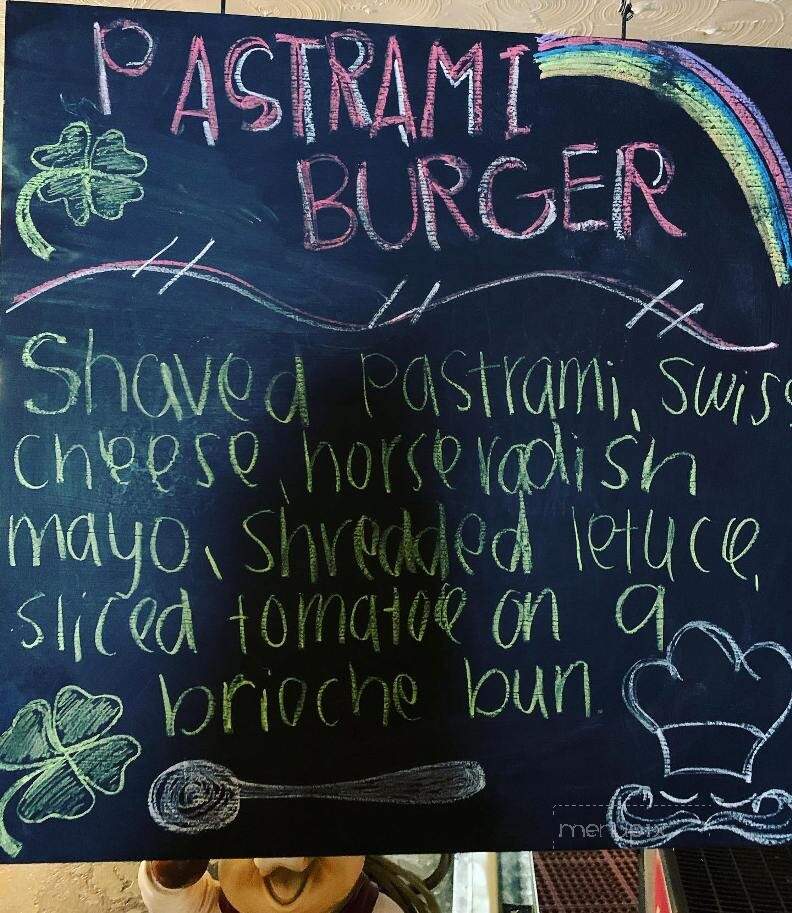 PASTRAMI
BURGER
Shaved Pastrami, swiss
cheese, horseradish
mayo, shredded letuce,
sliced tomatoe on a
brioche bun.